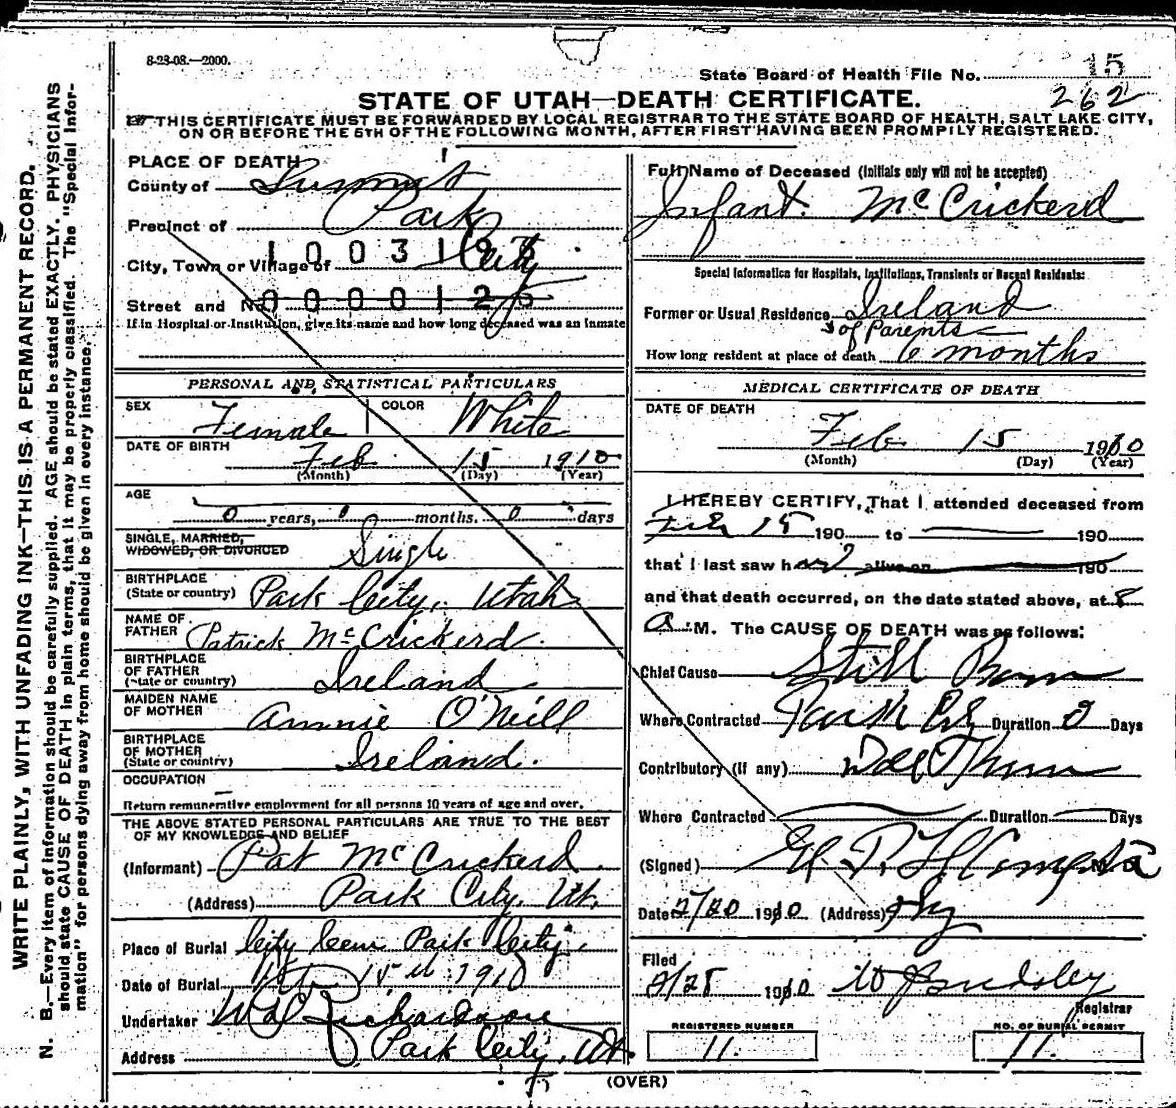 8-23-08.—2000.
State Board of Health File No. 15
262
STATE OF UTAH—DEATH CERTIFICATE.
THIS CERTIFICATE MUST BE FORWARDED BY LOCAL REGISTRAR TO THE STATE BOARD OF HEALTH, SALT LAKE CITY,
ON OR BEFORE THE 5TH OF THE FOLLOWING MONTH, AFTER FIRST HAVING BEEN PROMPTLY REGISTERED.
WRITE PLAINLY, WITH UNFADING INK—THIS IS A PERMANENT RECORD.
N. B.—Every item of information should be carefully supplied. AGE should be stated EXACTLY. PHYSICIANS
should state CAUSE OF DEATH in plain terms, that it may be properly classified. The "Special Infor-
mation" for persons dying away from home should be given in every instance.
PLACE OF DEATH
County of Summit
Precinct of Park
City, Town or Village of City
1003193
Street and No.
0000125
If in Hospital or Institution, give its name and how long deceased was an inmate
PERSONAL AND STATISTICAL PARTICULARS
SEX Female COLOR White
DATE OF BIRTH Feb 15 1910
(Month) (Day) (Year)
AGE
0 years, 0 months. 0 days
SINGLE, MARRIED,
WIDOWED, OR DIVORCED Single
BIRTHPLACE
(State or country) Park City, Utah
NAME OF
FATHER Patrick McCrickerd.
BIRTHPLACE
OF FATHER
(State or country) Ireland
MAIDEN NAME
OF MOTHER Annie O'Neill
BIRTHPLACE
OF MOTHER
(State or country) Ireland.
OCCUPATION —
Return remunerative employment for all persons 10 years of age and over.
THE ABOVE STATED PERSONAL PARTICULARS ARE TRUE TO THE BEST
OF MY KNOWLEDGE AND BELIEF
(Informant) Pat McCrickerd
(Address) Park City, Ut.
Place of Burial City Cem Park City.
Date of Burial 15th 1910
Undertaker Richardson
Address Park City, Ut.
Full Name of Deceased (Initials only will not be accepted)
Infant. McCrickerd
Special Information for Hospitals, Institutions, Transients or Recent Residents:
Former or Usual Residence Ireland
of Parents
How long resident at place of death 6 months
MEDICAL CERTIFICATE OF DEATH
DATE OF DEATH
Feb 15 1910
(Month) (Day) (Year)
I HEREBY CERTIFY, That I attended deceased from
Feb 15 190 to 190
that I last saw her alive on 190
and that death occurred, on the date stated above, at 8
A.M. The CAUSE OF DEATH was as follows:
Chief Cause Still Born
Where Contracted Park City Duration 0 Days
Contributory (if any)
Where Contracted Duration Days
(Signed) M.D.
Date 2/20 1910 (Address)
Filed
2/28 1910
Registrar
REGISTERED NUMBER
11.
NO. OF BURIAL PERMIT
11.
(OVER)